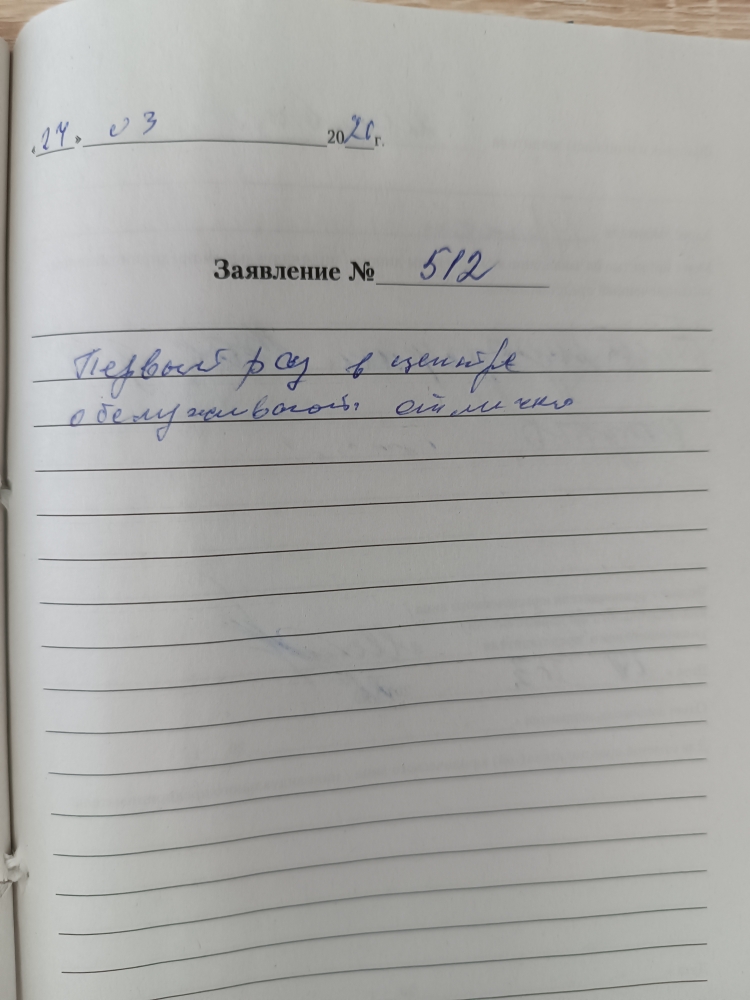 «24» 03 2026 г.
Заявление № 512
Первый раз в центре
обслуживают отлично